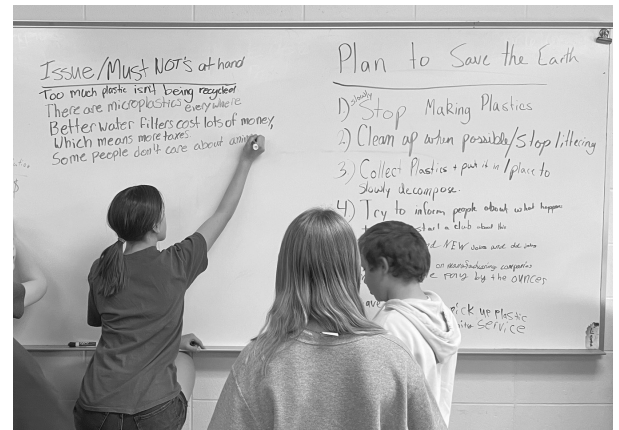 Issue/Must NOT's at hand
Too much plastic isn't being recycled
There are microplastics everywhere
Better water filters cost lots of money,
Which means more taxes
Some people don't care about
Plan to Save the Earth
1) slowly Stop Making Plastics
2) Clean up when possible/Stop littering
3) Collect Plastics + put it in 1 place to
slowly decompose.
4) Try to inform people about what happens
start a club about this
NEW
on manufacturing companies
by the owners
pick up plastic
service